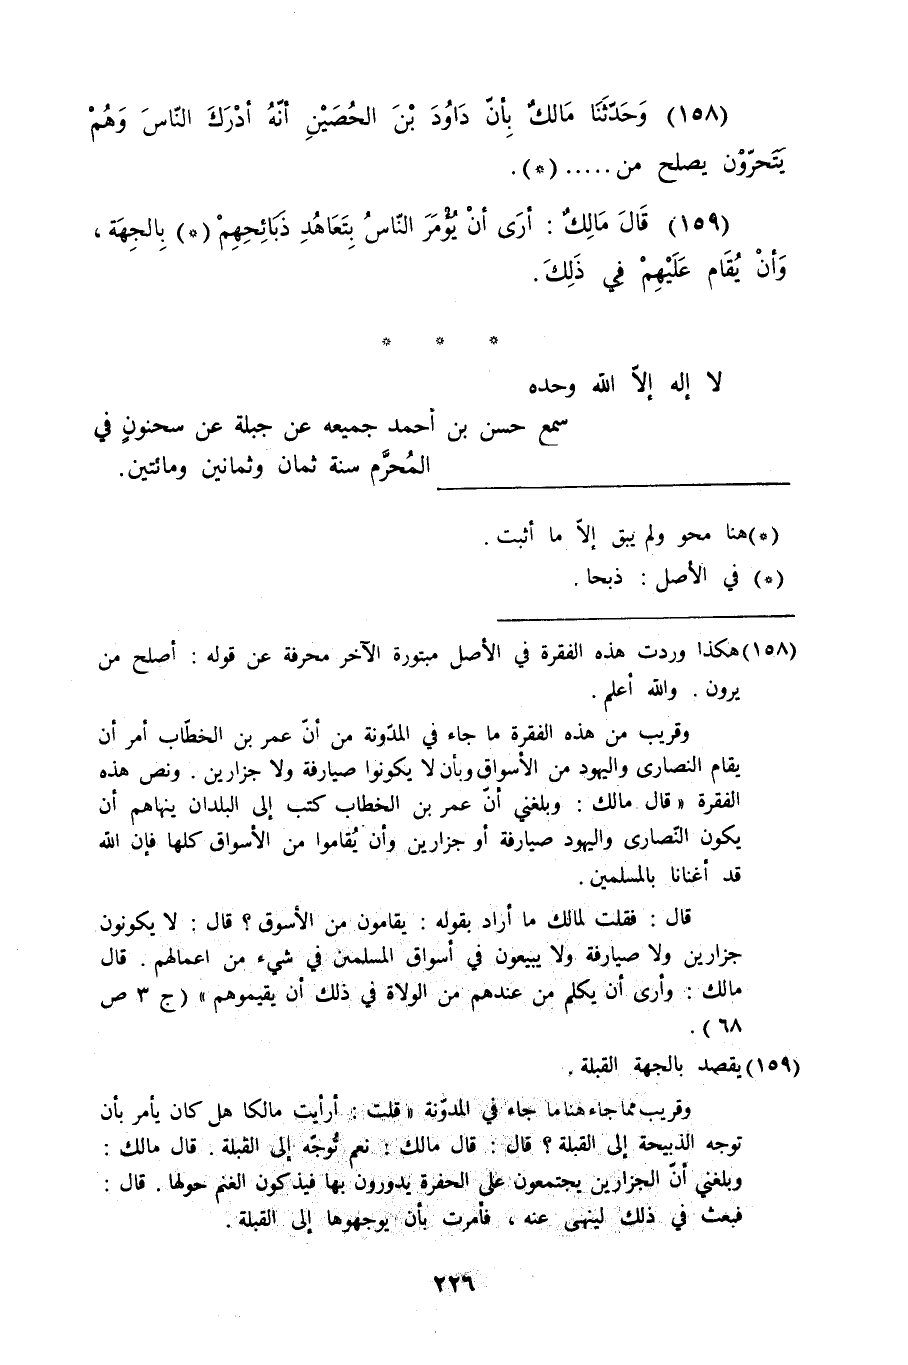 (١٥٨) وَحَدّثَنَا مَالكٌ بِأنّ دَاوُدَ بْنَ الحُصَيْنِ أنّهُ أدْرَكَ النّاسَ وَهُمْ
يَتَحرّوْن يصلح من ..... (*) .
(١٥٩) قَالَ مَالِكٌ : أرَى أنْ يُؤْمَرَ النّاسُ بِتَعَاهُدِ ذَبَائِحِهِمْ (*) بِالجِهَة ،
وَأنْ يُقَام عَلَيْهِمْ فِي ذَلِكَ .
* * *
لا إله إلاّ الله وحده
سمع حسن بن أحمد جميعه عن جبلة عن سحنونٍ في
المُحرَّم سنة ثمان وثمانين ومائتين .
(*) هنا محو ولم يبق إلاّ ما أثبت .
(*) في الأصل : ذبحا .
(١٥٨) هكذا وردت هذه الفقرة في الأصل مبتورة الآخر محرفة عن قوله : أصلح من
يرون . والله أعلم .
وقريب من هذه الفقرة ما جاء في المدّونة من أنّ عمر بن الخطّاب أمر أن
يقام النصارى واليهود من الأسواق وبأن لا يكونوا صيارفة ولا جزارين . ونص هذه
الفقرة « قال مالك : وبلغني أنّ عمر بن الخطاب كتب إلى البلدان ينهاهم أن
يكون النّصارى واليهود صيارفة أو جزارين وأن يُقاموا من الأسواق كلها فإن الله
قد أغنانا بالمسلمين .
قال : فقلت لمالك ما أراد بقوله : يقامون من الأسوق ؟ قال : لا يكونون
جزارين ولا صيارفة ولا يبيعون في أسواق المسلمين في شيء من اعمالهم . قال
مالك : وأرى أن يكلم من عندهم من الولاة في ذلك أن يقيموهم » ( ج ٣ ص
٦٨ ) .
(١٥٩) يقصد بالجهة القبلة .
وقريب مما جاء هنا ما جاء في المدوّنة « قلت : أرأيت مالكا هل كان يأمر بأن
توجه الذبيحة إلى القبلة ؟ قال : قال مالك : نعم تُوجّه إلى القبلة . قال مالك :
وبلغني أنّ الجزارين يجتمعون على الحفرة يدورون بها فيذكون الغنم حولها . قال :
فبعث في ذلك لينهى عنه ، فأمرت بأن يوجهوها إلى القبلة .
٢٢٦